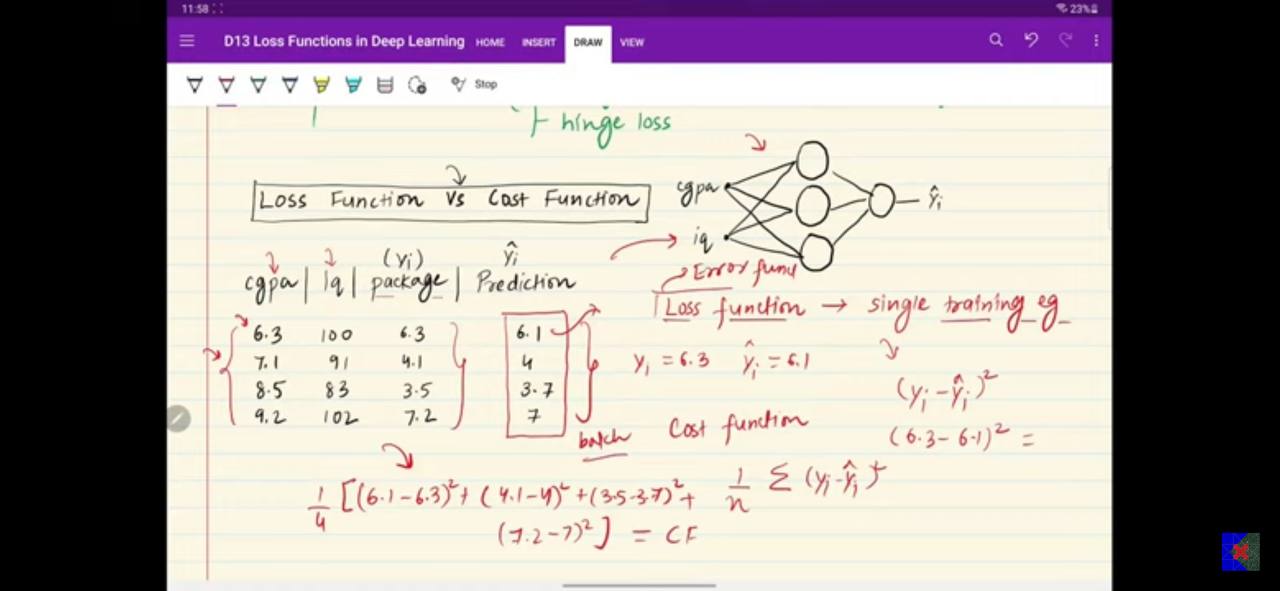 11:58
23%
D13 Loss Functions in Deep Learning HOME INSERT DRAW VIEW
Stop
hinge loss
Loss Function Vs Cost Function
cgpa
iq
ŷi
(yi) ŷi
cgpa | iq | package | Prediction
6.3 100 6.3 6.1
7.1 91 4.1 4
8.5 83 3.5 3.7
9.2 102 7.2 7
batch
Error func
Loss function → single training eg
yi = 6.3 ŷi = 6.1
(yi - ŷi)²
(6.3 - 6.1)² =
Cost function
1/n Σ (yi - ŷi)²
1/4 [(6.1 - 6.3)² + (4.1 - 4)² + (3.5 - 3.7)² +
(7.2 - 7)²] = CF